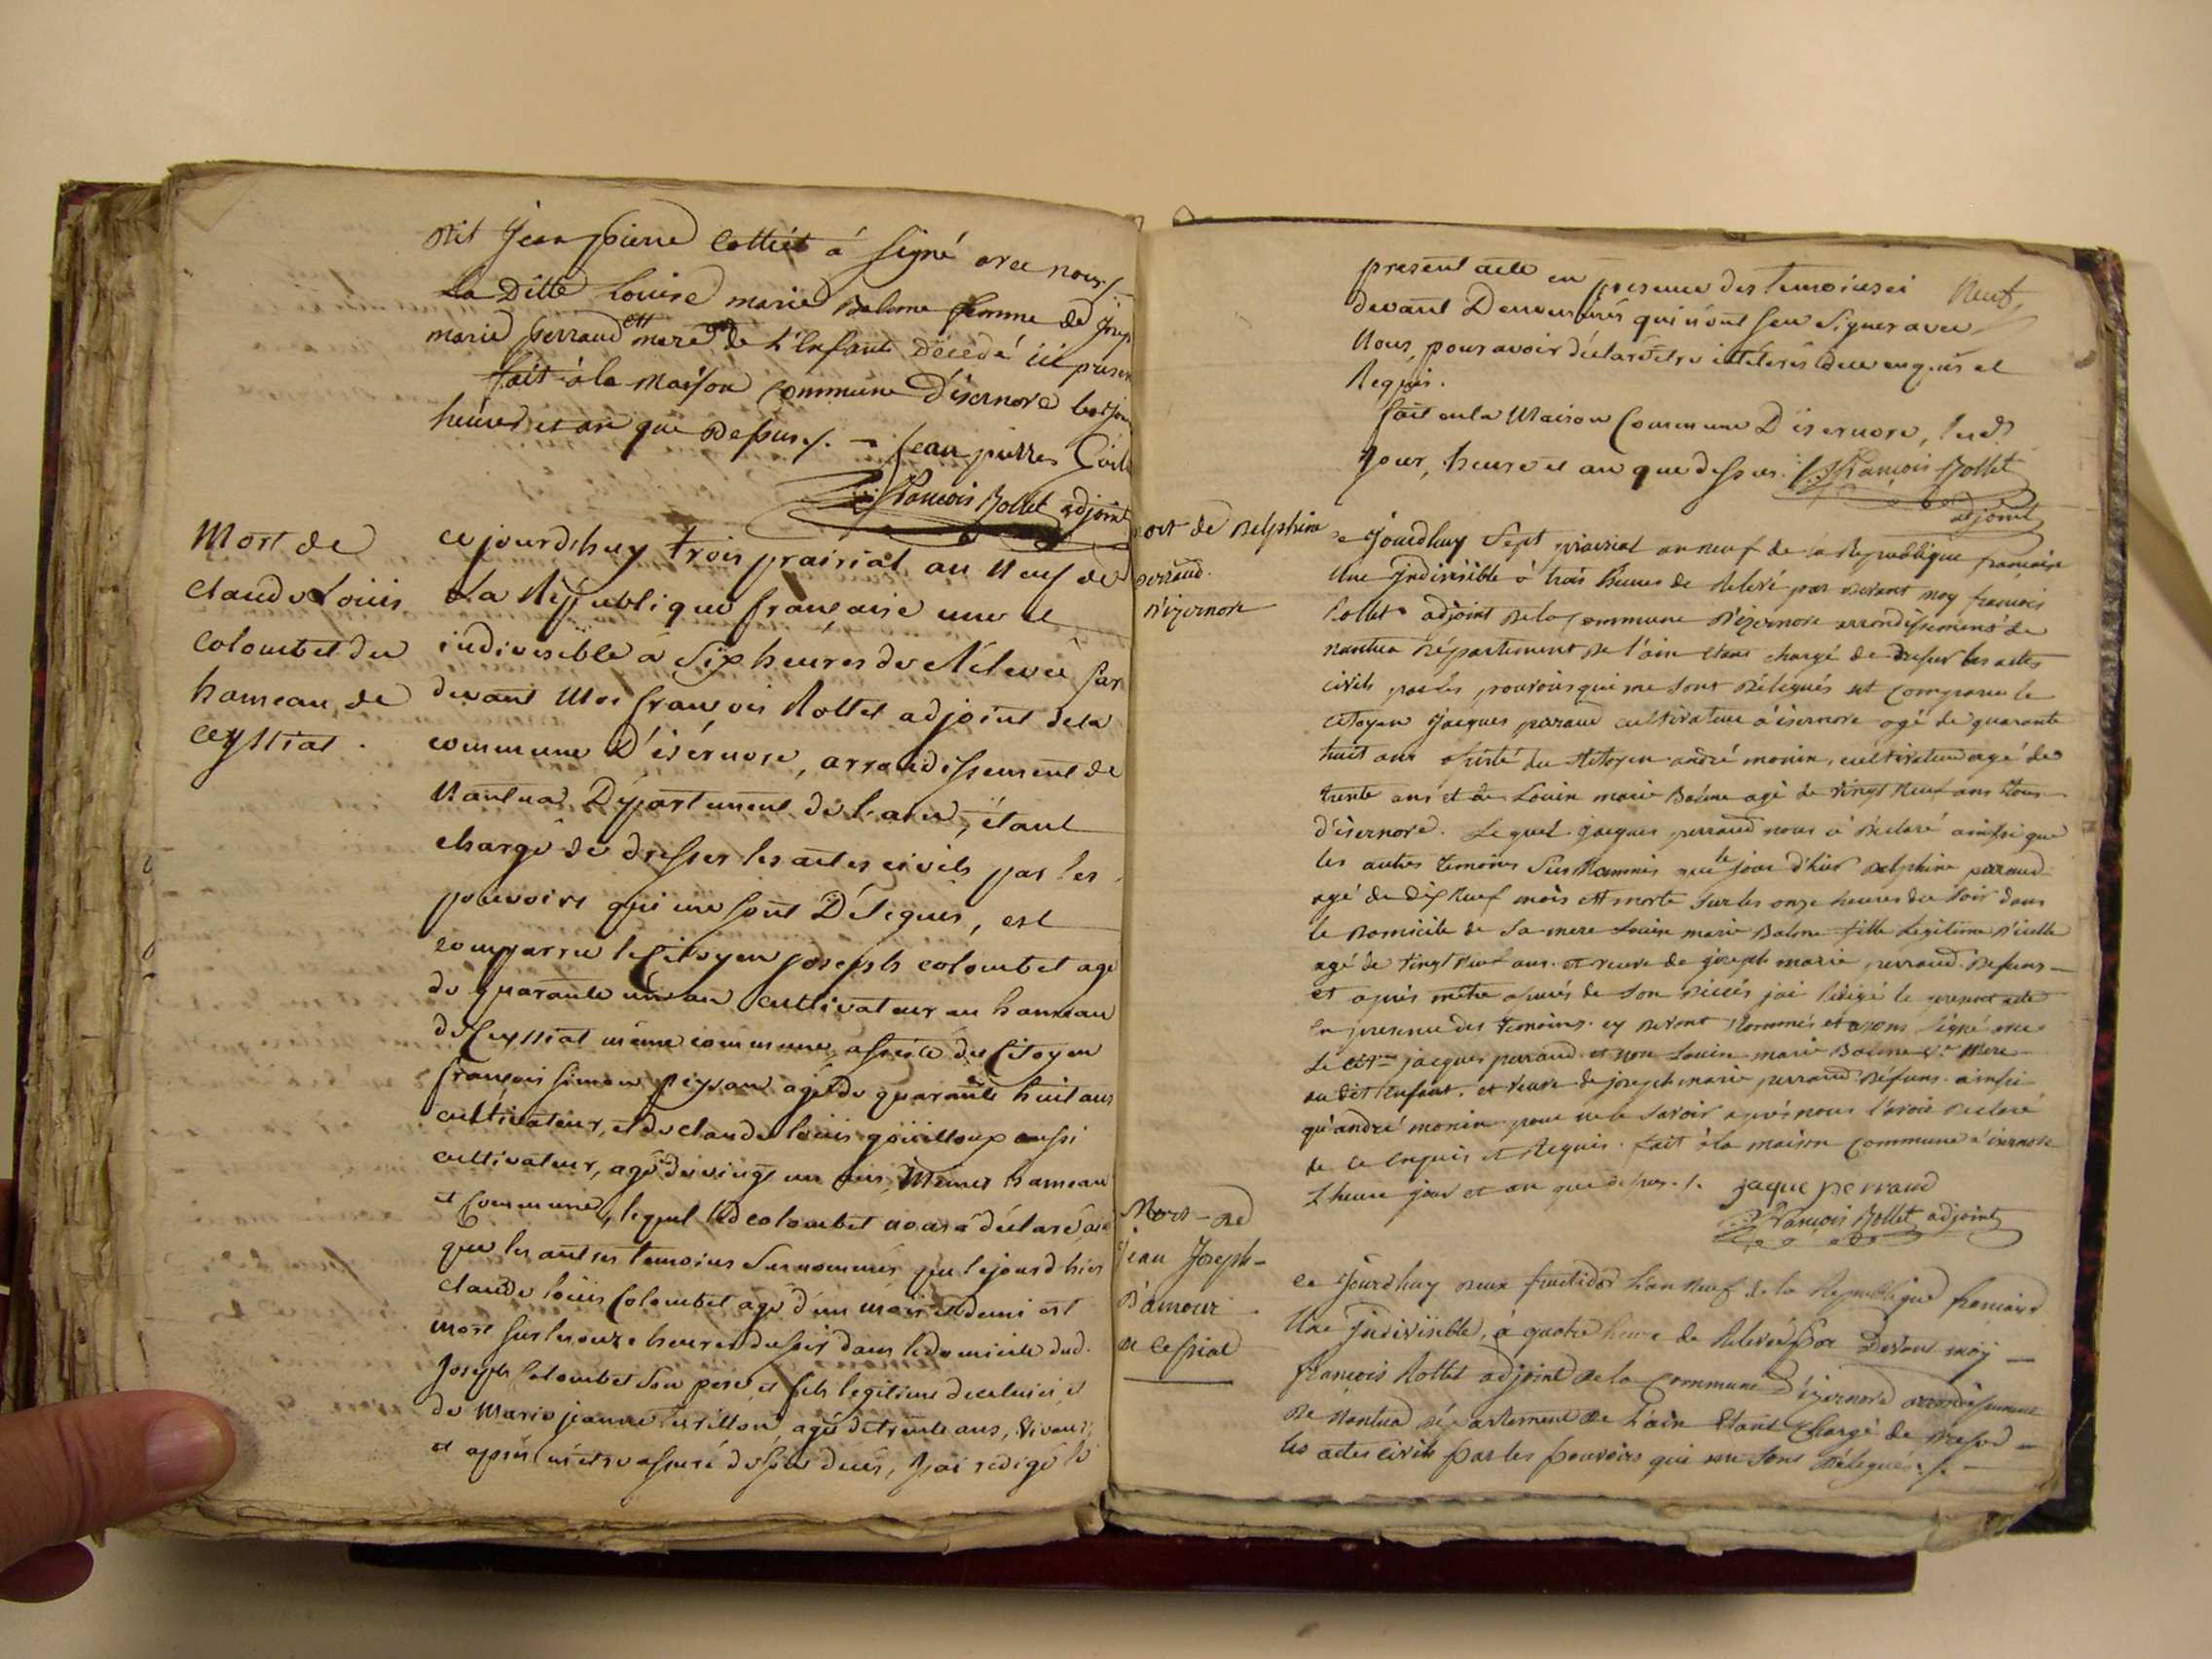 dit Jean pierre Cottiet á signé avec nous
La Ditte Louise marie Balme femme de Josep
marie perraud et mere de L'Enfant Décedé ici presen
fait à la maison Commune D'isernore les jour
heures et an que Dessus ./. Jean pierres
François Rollet adjoint
Mort de
claude Louis
colombet du
hameau de
ceyssiat .
ce jourdhuy trois prairial an Neuf de
La République française une et
indivisible à Six heures de Rélevée par
devant Moi françois Rollet adjoint de la
commune D'isérnore, arrondissement de
Nantua Département de l'ain, étant
chargé de dresser les actes civils par les
pouvoirs qui me sont Délégués, est
comparru le Citoyen joseph colombet agé
de quarante un an cultivateur au hameau
de Ceyssiat même commune assisté du Citoyen
françois simon agé de quarante huit ans
cultivateur, et de claude louis goüilloux aussi
cultivateur, agé de vingt un ans, Mêmes hameau
et Commune, lequel led colombet nous á déclaré ainsi
que les autres temoins Surnommés que le jourd hier
claude loüis Colombet agé d'un mois et demi est
mort sur les onze heures du soir dans le domicile dud.
Joseph Colombet son pere et fils legitime de celui ci et
de Marie jeanne agé de trente ans, vivant;
et aprés m'être assuré de son décés, j'ai rédigé le
present acte en presence des temoins ci Neuf
devant Denommés qui n'ont seu Signer avec
Nous, pour avoir déclaré être illiterés de ce enquis et
Requis.
fait en la Maison Commune D'isernore, lesd.
Jour, heure et an que dessus ./. François Rollet
adjoint
ort de Delphine
perraud.
D'izernore
ce Jourdhuy Sept prairial an neuf de la Republique française
Une Indivisible à trois heures de Relevé par devant moy françois
Rollet adjoint de la Commune D'izernore arrondissement de
nantua Département de l'ain etant chargé de dresser les actes
civils par les pouvoirs qui me sont Délegués est comparu le
citoyen Jacques perraud cultivateur à isernore agé de quarante
huit ans assisté du citoyen andré monin, cultivateur agé de
trente ans et de Louise marie Balme agé de vingt Neuf ans tous
d'isernore. Lequel jacques perraud nous à déclaré ainssi que
les autres temoins Sus Nommés que le jour d'hier Delphine perraud
agé de Dix Neuf mois est morte sur les onze heures du soir dans
le Domicile de Sa mere Louise marie Balme fille Legitime d'icelle
agé de vingt neuf ans. et veuve de joseph marie perraud Defuns
et aprés mêtre assurés de son décés jai rédigé le present acte
En presence des temoins cy devant Nommés et avons signé avec
Le citoyen jacques perraud et non Louise marie Balme Ve Mere
au dit Enfant, et veuve de joseph marie perraud Défuns. ainssi
qu'andré monin pour ne le savoir aprés nous l'avoir declaré
de ce Enquis et Requis. fait à la maison Commune d'isernore
L heure jour et an que dessus ./. jaque perraud
François Rollet adjoint
Mort de
Jean Joseph
D'amour
de Cessiat
Ce Jourdhuy deux fructidor L'an Neuf de la Republique française
Une Indivisible, à quatre heure de Relevée par Devant moy
françois Rollet adjoint de la Commune D'izernore arrondissement
de Nantua département de L'ain Etant Chargé de dressé
les actes civils par les pouvoirs qui me sont Délegués ./.